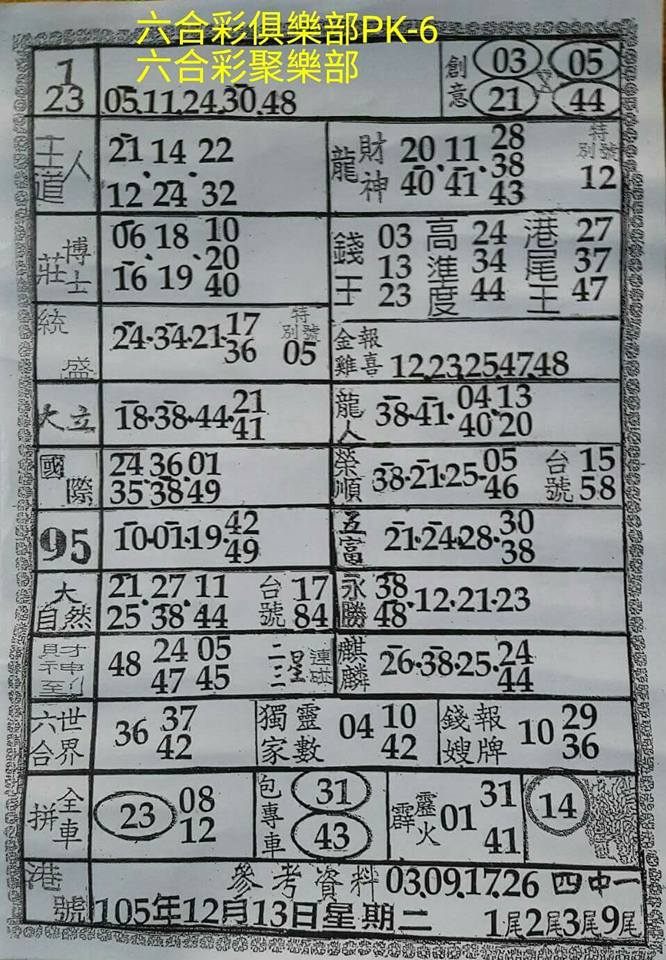 六合彩俱樂部PK-6
六合彩聚樂部
1
23
05.11.24.30.48
創意
03 05
21 44
王道人
21 14 22
12 24 32
龍財神
20 11 28
38
40 41 43
特別號
12
莊博士
06 18 10
20
16 19 40
錢王
03
13
23
高準度
24
34
44
港尾王
27
37
47
統盛
24.34.21.17
36
特別號
05
金雞報喜
12.23.25.47.48
大立
18.38.44.21
41
龍人
38.41.04.13
40.20
國際
24.36.01
35.38.49
榮順
38.21.25.05
46
台號
15
58
95
10.01.19.42
49
五富
21.24.28.30
38
大自然
21 27 11
25 38 44
台號
17
84
永勝
38
48.12.21.23
財神到
48 24 05
47 45
二三星連碰
麒麟
26.38.25.24
44
六合世界
36 37
42
獨家靈數
04 10
42
錢嫂報牌
10 29
36
拼全車
23 08
12
包專車
31
43
霹靂火
01 31
41
14
港號
參考資料 03.09.17.26 四中一
105年12月13日星期二 1尾2尾3尾9尾